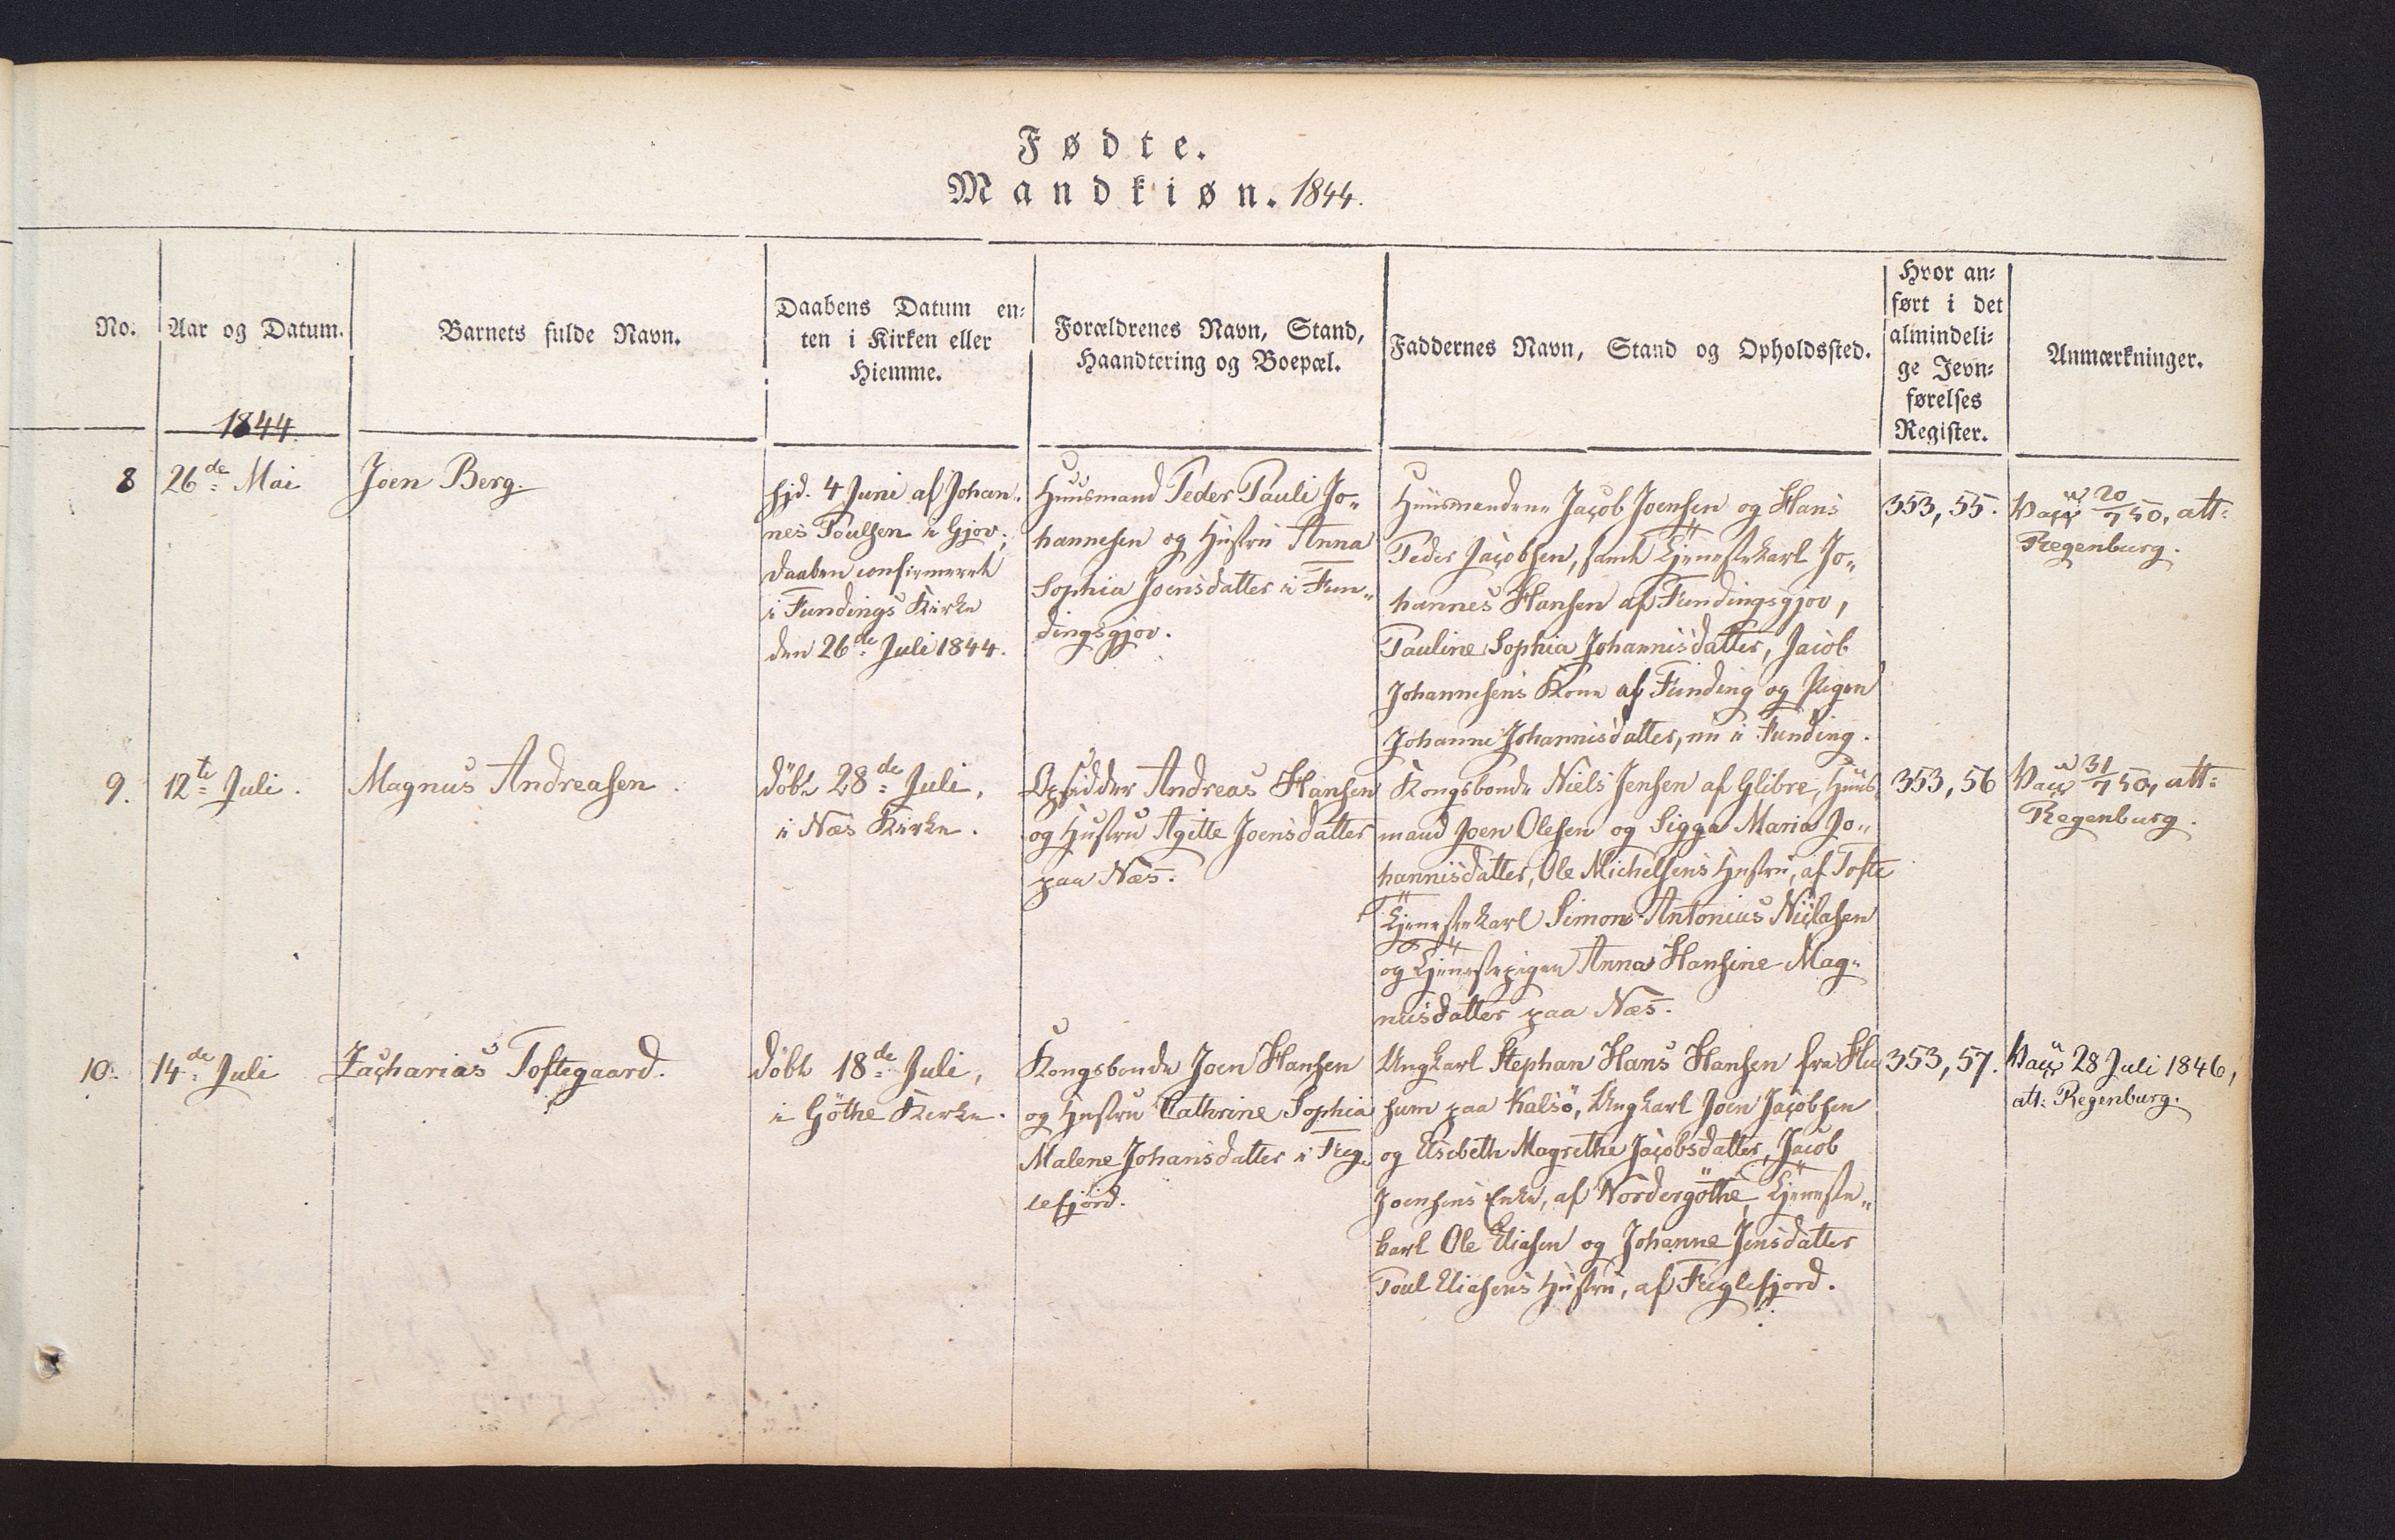 Fødte.
Mandkiøn. 1844.
No.
Aar og Datum.
1844
Barnets fulde Navn.
Daabens Datum en-
ten i Kirken eller
Hiemme.
Forældrenes Navn, Stand,
Haandtering og Boepæl.
Faddernes Navn, Stand og Opholdssted.
Hvor an-
ført i det
almindeli-
ge Jevn-
førelses
Register.
Anmærkninger.
8
26de Mai
Joen Berg.
hjd. 4 Juni af Johan-
nes Poulsen i Gjov;
daaben confirmeret
i Fundings Kirke
den 26de Juli 1844.
Huusmand Peder Pauli Jo-
hannesen og Hustru Anna
Sophia Joensdatter i Fun-
dingsgjov.
Huusmændene Jacob Joensen og Hans
Peder Jacobsen, samt Tjenestekarl Jo-
hannes Hansen af Fundingsgjov,
Pauline Sophia Johannisdatter, Jacob
Johannesens Kone af Funding og Pigen
Johanne Johannisdatter, nu i Funding.
353,55.
Vacc 20/7 50, att:
Regenburg.
9.
12te Juli.
Magnus Andreasen.
döbt 28de Juli,
i Næs Kirke.
Opsidder Andreas Hansen
og Hustru Agitte Joensdatter
paa Næs.
Kongsbonde Niels Jensen af Glibre, Huus-
mand Joen Olesen og Sigga Maria Jo-
hannisdatter, Ole Michelsens Hustru, af Tofte
Tjenestekarl Simon Antonius Niclasen
og Tjenestepigen Anna Hansine Mag-
nusdatter paa Næs.
353,56
Vacc 31/7 50, att:
Regenburg.
10.
14de Juli
Zacharias Toftegaard.
döbt 18de Juli,
i Göthe Kirke.
Kongsbonde Joen Hansen
og Hustru Cathrine Sophia
Malene Johansdatter i Fug-
lefjord.
Ungkarl Stephan Hans Hansen fra Hu-
sum paa Kalsö, Ungkarl Joen Jacobsen
og Elsebeth Magrethe Jacobsdatter, Jacob
Joensens Enke, af Nordergöthe, Tjeneste-
karl Ole Eliasen og Johanne Jensdatter
Poul Eliasens Hustru, af Fuglefjord.
353,57.
Vacc 28 Juli 1846,
att: Regenburg.